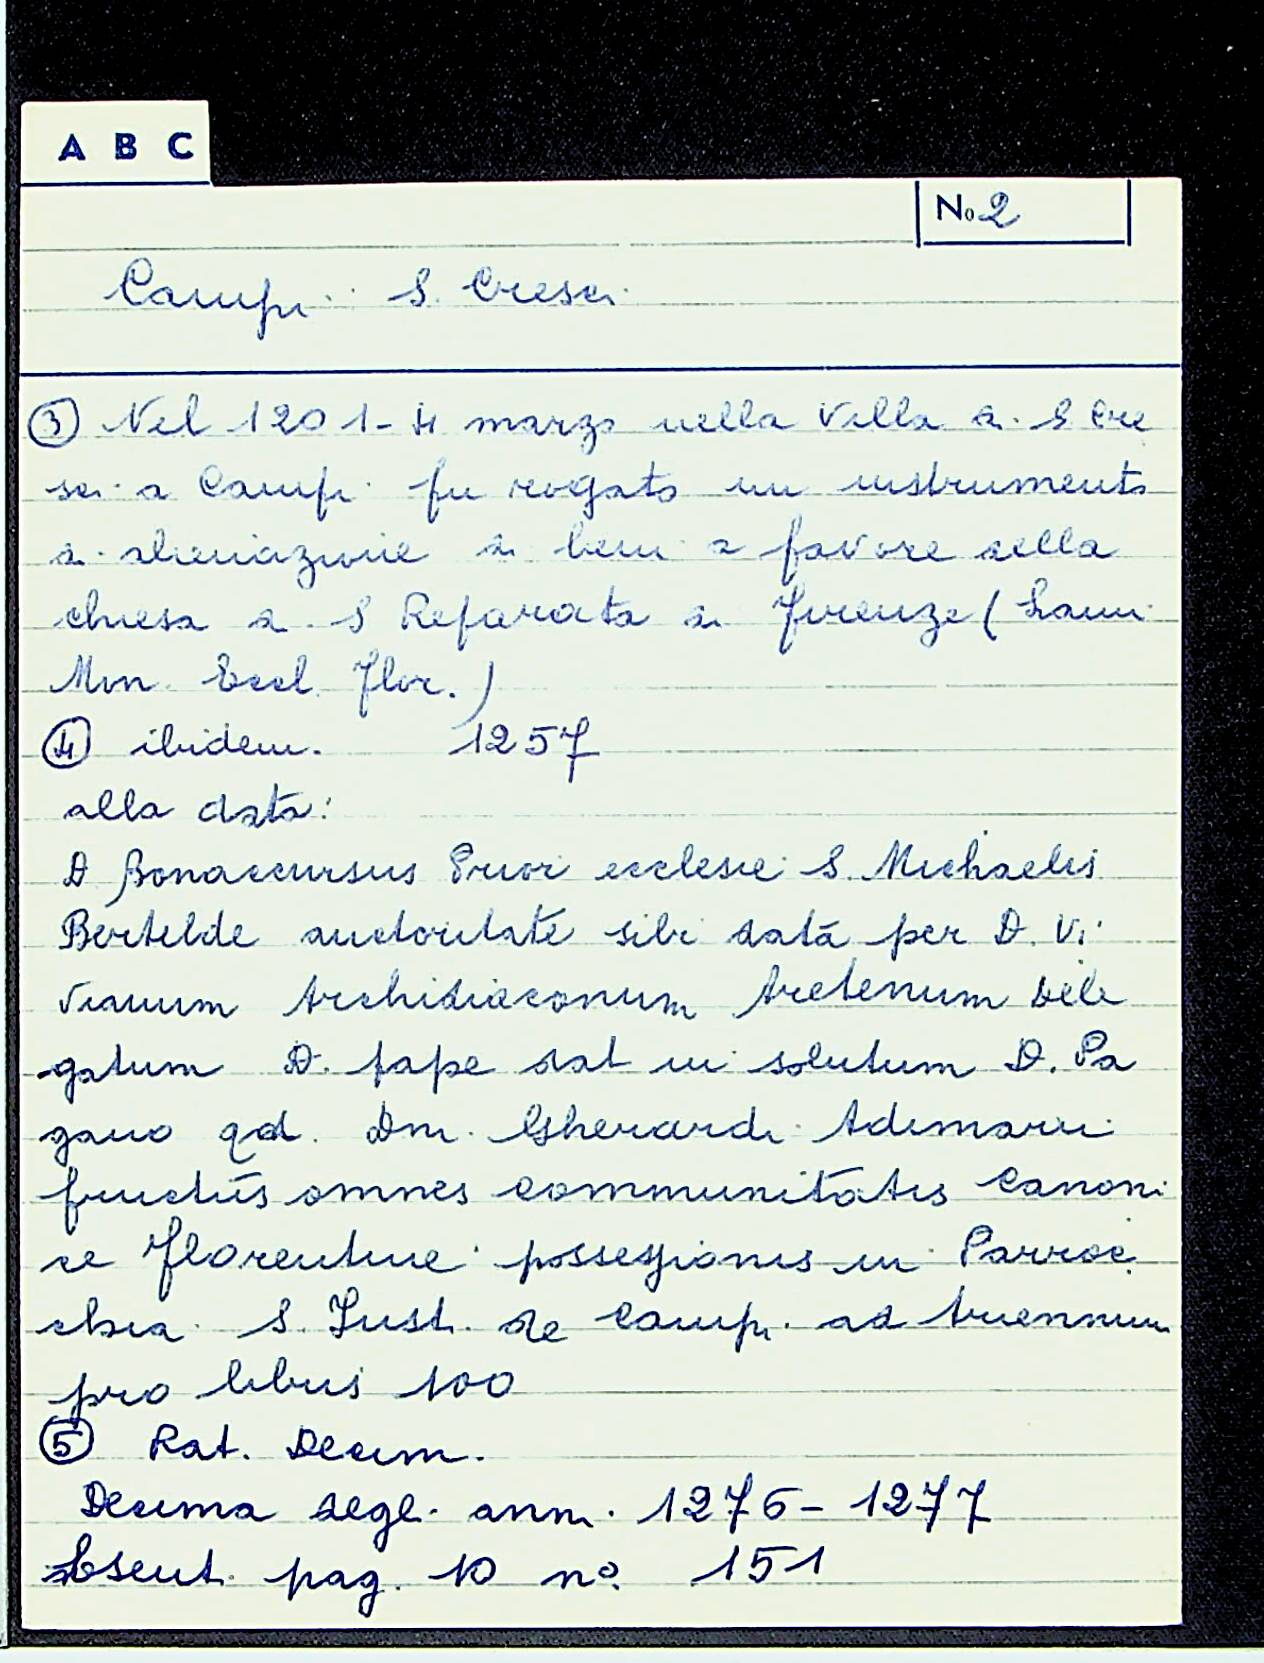 A B C
No 2
Campi S. Cresci
③ Nel 1201-4 marzo nella Villa di S Cre
sci a Campi fu rogato un instrumento
di alienazione di beni a favore della
chiesa di S Reparata di Firenze (Lami
Mon. Eccl. Flor.)
④ ibidem. 1257
alla data:
D Bonaccursus Prior ecclesie S. Michaelis
Bertelde auctoritate sibi datâ per D. Vi
vianum Archidiaconum Aretenum dele
gatum D. pape dat in solutum D. Pa
gano qd. Dm. Gherardi Adimarii
fructūs omnes communitatis Canoni
ce Florentine possessionis in Parroc
chia S. Iust. de Campi ad triennium
pro libris 100
⑤ Rat. Decim.
Decima degl. ann. 1276-1277
Esent. pag. 10 no. 151